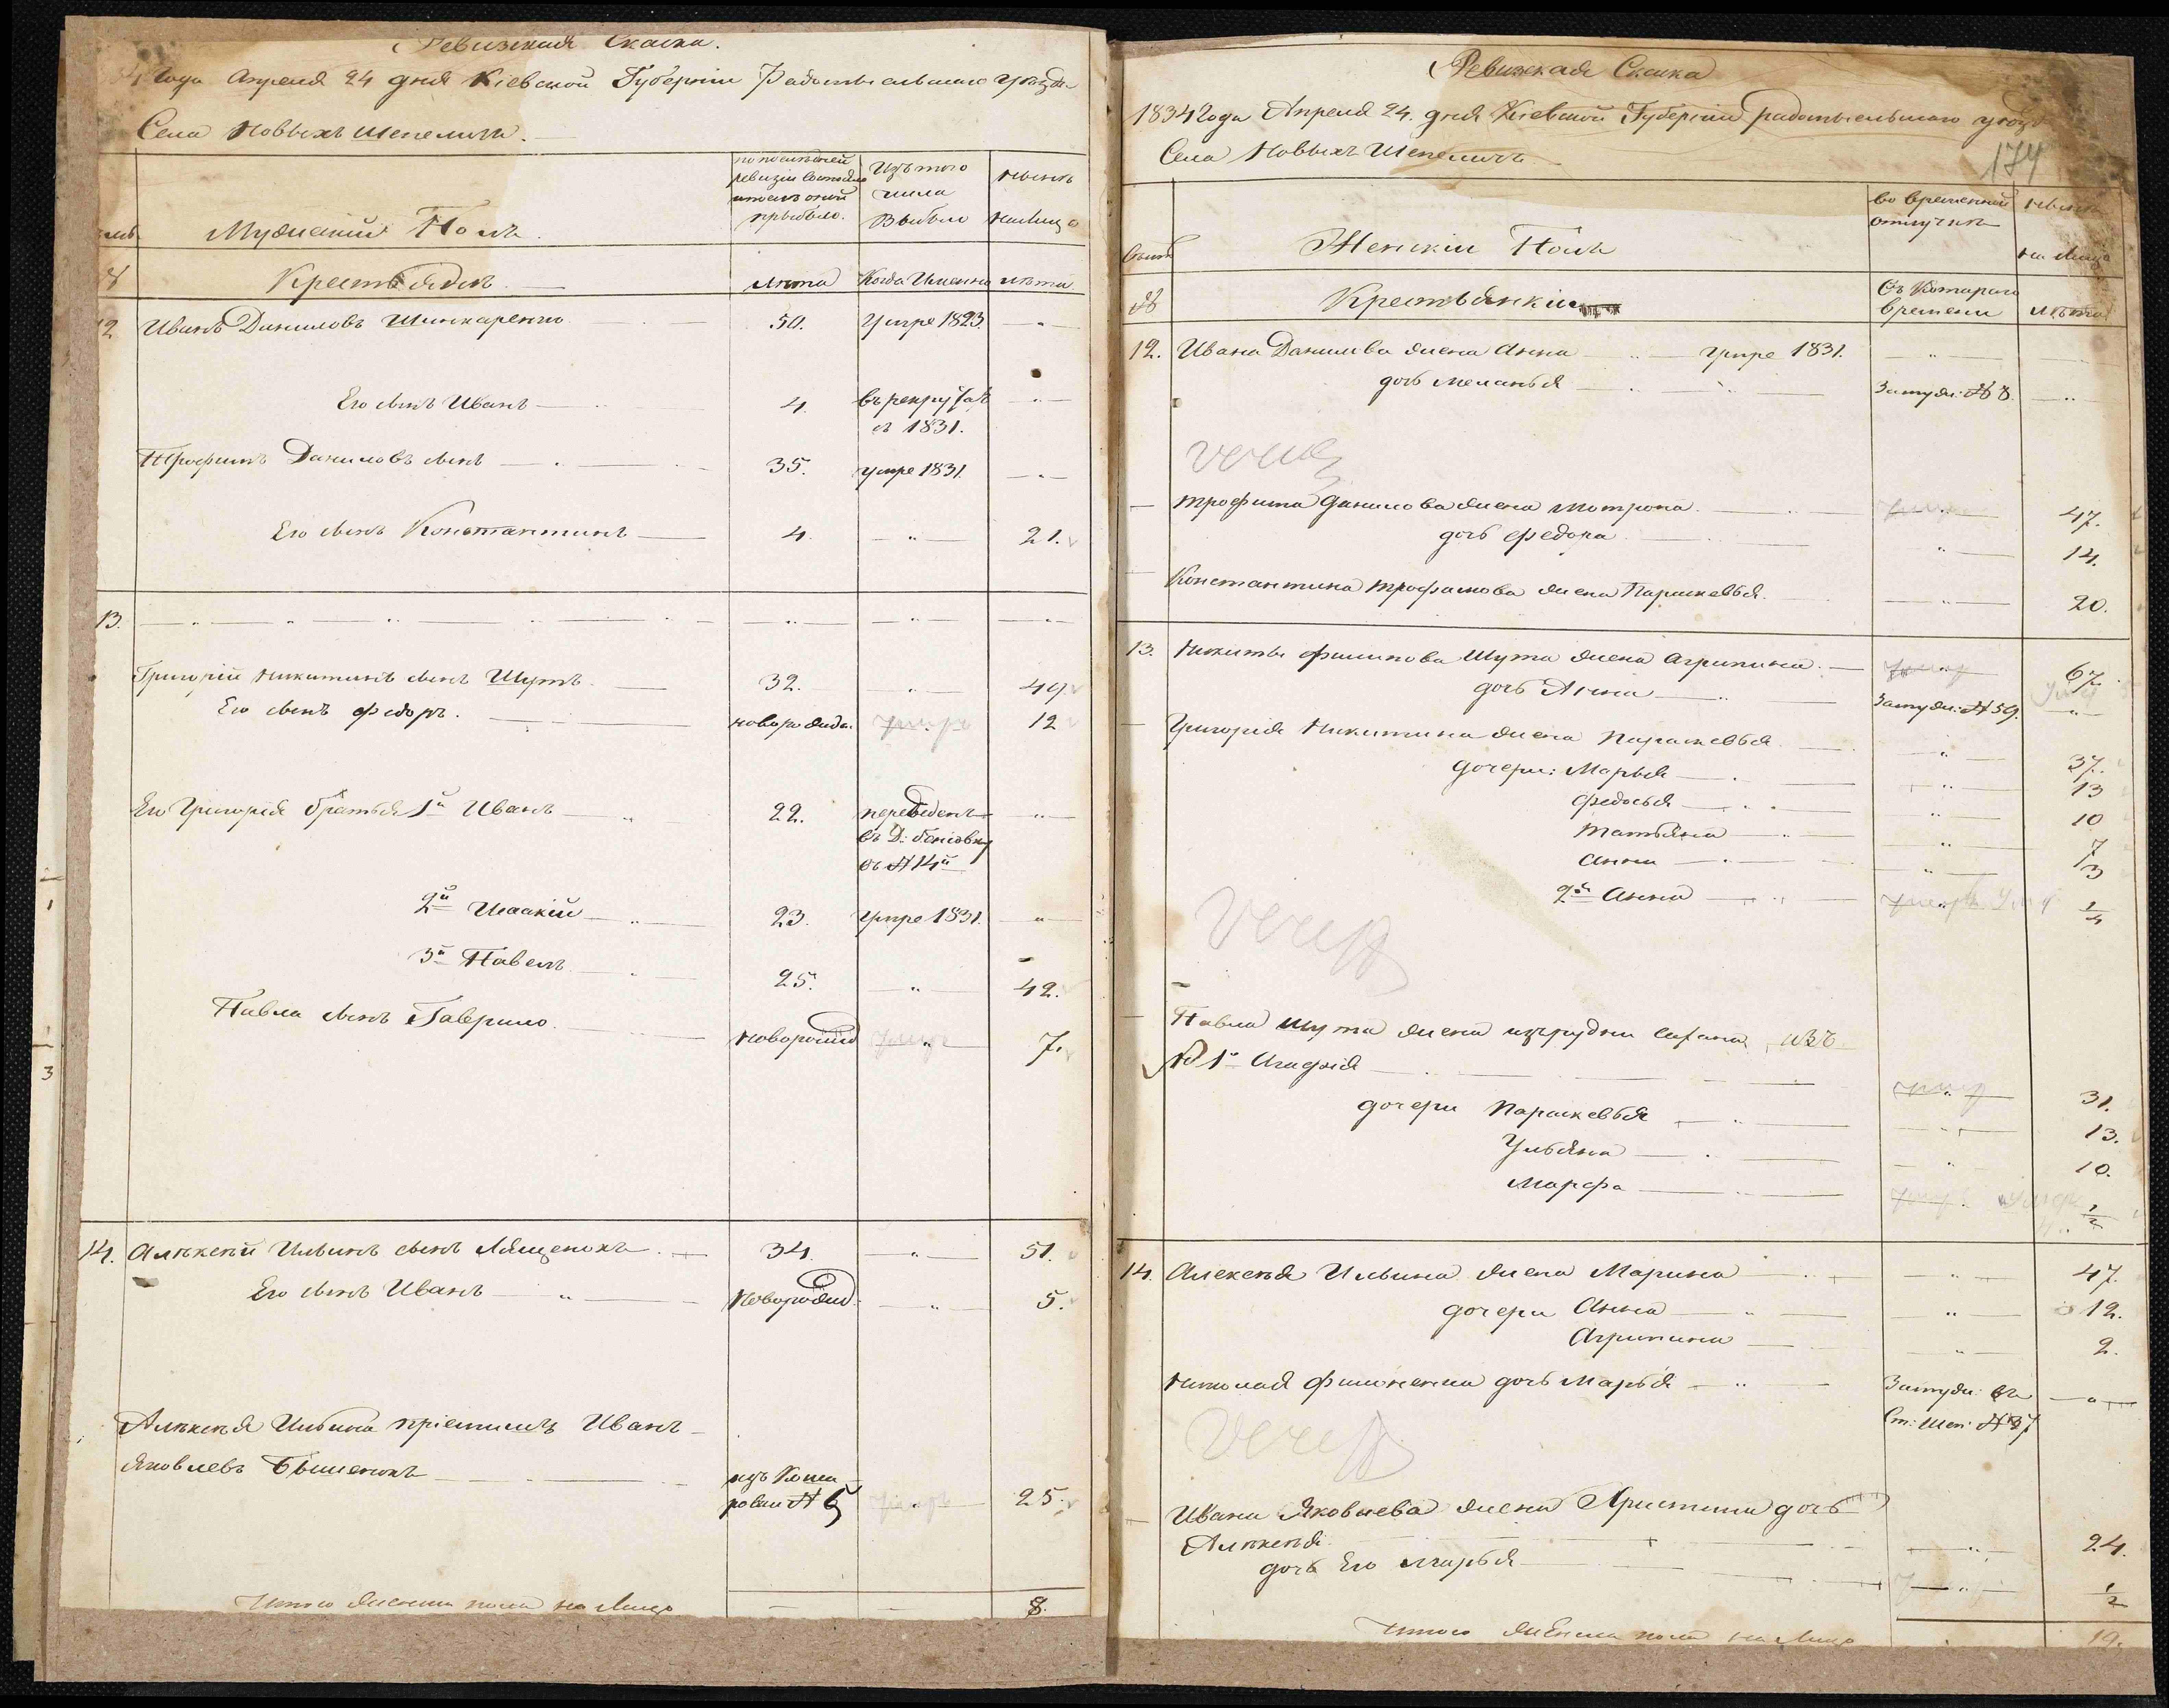 Ревизская Сказка.
года Апреля 24 дня Кіевской Губерніи Радомысльскаго уезда
Села Новыхъ Шепеличь.
по последней ревизіи состояло и после оной прибыло.
Изъ того числа Выбыло
ныне на лицо
Мужескій Полъ.
№
Крестьяне
лета
Когда Именно
лета
12 Иванъ Даниловъ Шинкаренко 50. Умре 1823. "
Его сынъ Иванъ 4. въ рекрутахъ "
съ 1831.
Трофимъ Даниловъ сынъ 35. умре 1831. "
Его сынъ Константинъ 4. " 21.
13. " " "
Григорій Никитинъ сынъ Шутъ 32. " 49.
Его сынъ Федоръ. новорожде. умеръ 12
Его Григорія братья 1й Иванъ 22. переведенъ "
въ Д:
въ № 14й
2й Исаакій 23. Умре 1831. "
3й Павелъ 25. " 42.
Павла сынъ Гаврило. Новорожд " 7.
14. Алексей Ильинъ сынъ Лященокъ 34. " 51.
Его сынъ Иванъ " Новорожд. " 5.
Алексея Ильина пріемышъ Иванъ
Яковлевъ изъ Коша
ровки № 5 25.
Итого Мужеска пола на Лицо 8.
Ревизская Сказка
174
1834 Года Апреля 24. дня Кіевской Губерніи Радомысльскаго уезда
Села Новыхъ Шепеличь
во временной отлучке
ныне на Лицо
Семьи
Женскій Полъ
№
Крестьянкіи
Съ Котораго времени
лета
12. Ивана Данилова жена Анна умре 1831. "
дочь Меланья Замуж: № 8. "
Трофима Данилова жена Мотрона 47.
дочь Федора " 14.
Константина Трофимова жена Параскевья. " 20.
13. Никиты Филипова Шута жена Агрипина. 67.
дочь Анна Замуж: № 59. "
Григорія Никитина жена Параскевья " 37.
дочери: Марья " 13
Федосья " 10
Татьяна " 7
Анна " 3
2я Анна 1/4
Павла Шута жена изъ
№ 1 Агафія 31.
дочери Параскевья 13.
Ульяна " 10.
Марфа 1/2
14. Алексея Ильина жена Марина " 47.
дочери Анна " 12.
Агрипина " 2.
Николая дочь Марья " Замуж: въ "
Ст: Шеп: № 37
Ивана Яковлева жена Христина дочь
Алексея " 24.
дочь Его Марья 1/2
Итого Женска пола на Лицо 19.